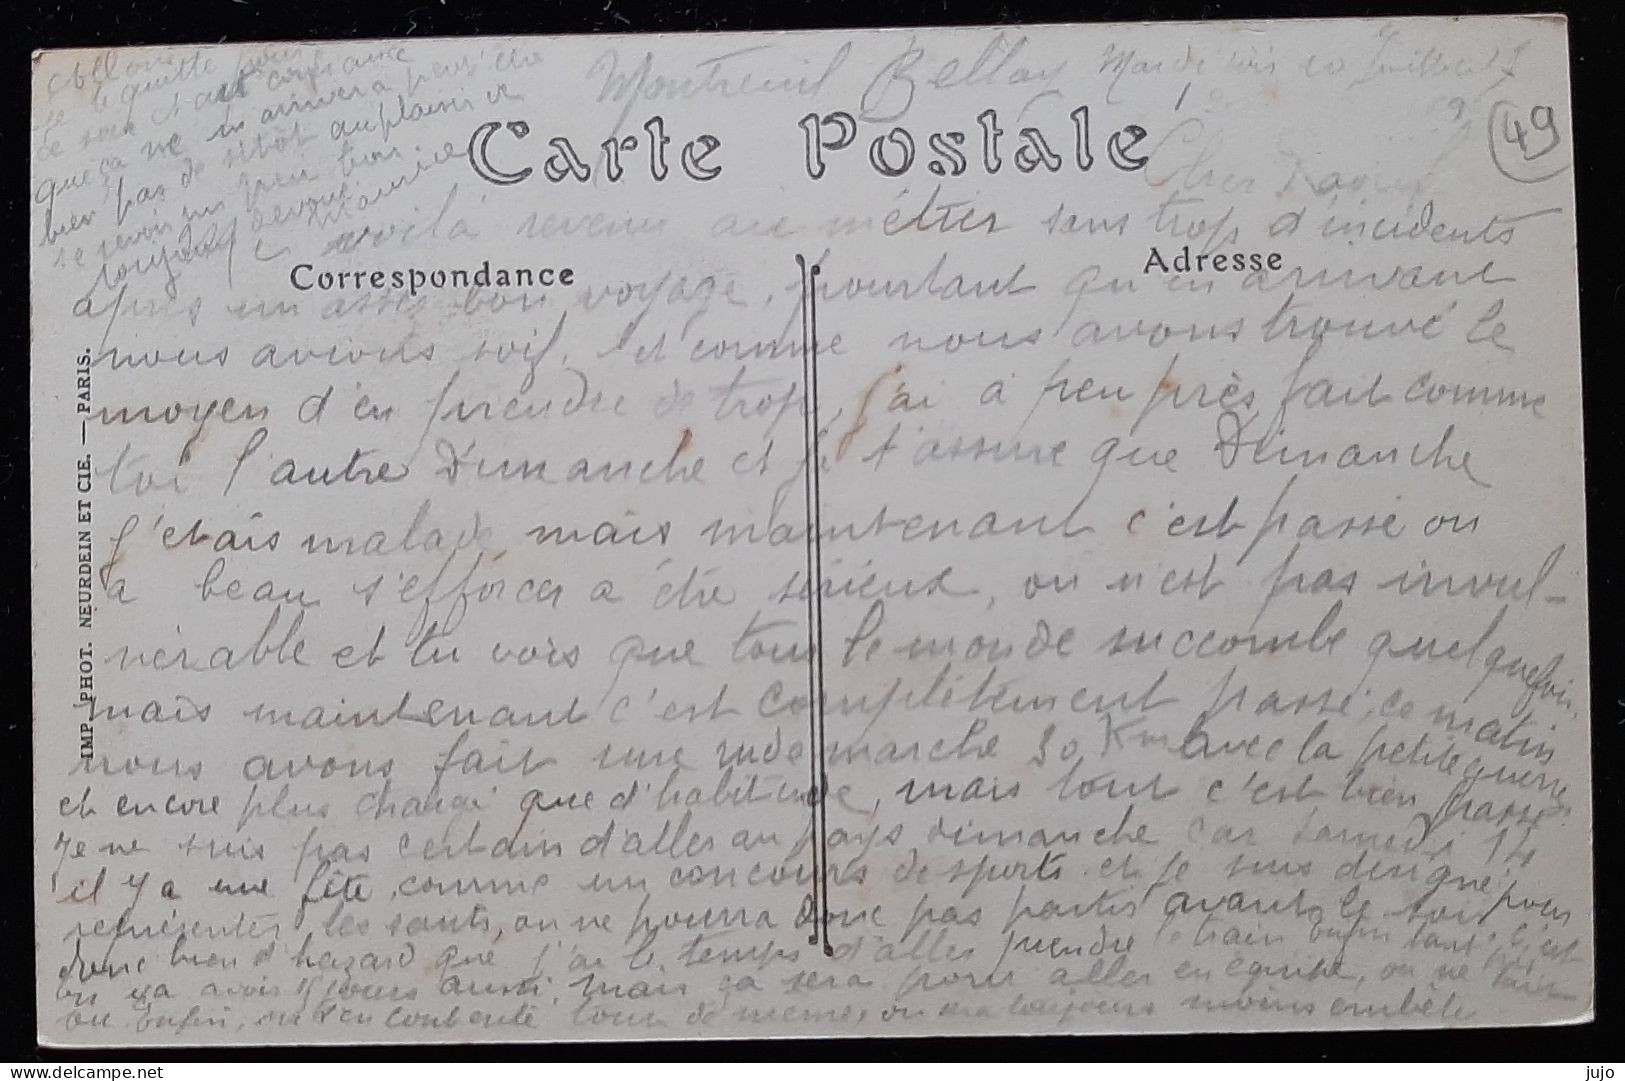 Montreuil Bellay Mardi soir 10 Juillet
49
Carte Postale
Cher Raoul
Me voilà revenu au métier sans trop d'incidents
Correspondance
Adresse
après un assez bon voyage, pourtant qu'en arrivant
nous avions soif, et comme nous avons trouvé le
moyen d'en prendre de trop, j'ai à peu près fait comme
toi l'autre Dimanche et je t'assure que Dimanche
j'étais malade, mais maintenant c'est passé on
a beau s'efforcer a être sérieux, on n'est pas invul-
nérable et tu vois que tout le monde succombe quelquefois,
mais maintenant c'est complètement passé, ce matin
nous avons fait une rude marche 30 Km avec la petite guerre
et encore plus chargé que d'habitude, mais tout c'est bien passé.
Je ne suis pas certain d'aller au pays dimanche car samedi 14
il y a une fête, comme un concours de sports et je suis désigné pour
représenter les sauts, on ne pourra donc pas partir avant le soir c'est
donc bien d'hazard que j'ai le temps d'aller prendre le train Enfin tant pis
on va avoir jours aussi, mais ça sera pour aller en équipe, on ne
ou Enfin, content tout de même, on toujours moins embêté
Allons
je te quitte pour
ce soir et aie confiance
que ça ne m'arrivera peut être
bien pas de sitôt au plaisir de
se revoir un peu tous.
Toujours dévoué
Maurice
IMP. PHOT. NEURDEIN ET CIE. — PARIS.
www.delcampe.net
jujo